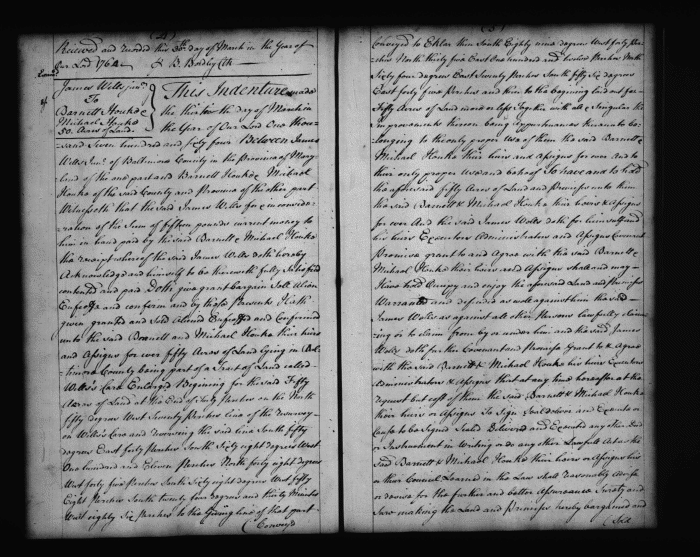 (4)
Received and recorded this 30th day of March in the Year of
Our Lord 1764 B. Bordley Clk
James Wells junr
To
Barnett Houke &
Michael Houke
50. Acres of Land
This Indenture made
the thirteenth day of March in
the Year of Our Lord One Thou-
sand Seven hundred and sixty four Between James
Wells Junr. of Baltimore County in the Province of Mary-
land of the one part and Barnett Houke & Michael
Houke of the said County and Province of the other part
Witnesseth that the said James Wells for & in conside-
ration of the Sum of fifteen pounds current money to
him in hand paid by the said Barnett & Michael Houke
the receipt whereof the said James Wells doth hereby
Acknowledge and himself to be therewith fully Satisfied
contented and paid Doth grant bargain Sell Alien
Enfeoffe and confirm and by these presents Hath
given granted and Sold Aliened Enfeoffed and Confirmed
unto the said Barnett and Michael Houke their heirs
and Assigns for ever fifty Acres of Land lying in Bal-
timore County being part of a Tract of Land called
Wells's Care Enlarged Beginning for the said Fifty
Acres of Land at the End of Perches on the North
fifty degrees West Seventy Perches line of the resurvey
on Wells's Care and reversing the said line South fifty
degrees East forty Perches South Sixty eight degrees West
One hundred and Eleven Perches North forty eight degrees
West forty four Perches South Sixty eight degrees West fifty
Eight Perches South twenty four degrees and thirty Minutes
West eighty Six Perches to the Given line of that part
Conveyed
(5)
Conveyed to Ehlar then South Eighty nine degrees West forty Per-
ches North thirty five East One hundred and twelve Perches North
Sixty four degrees East Seventy Perches South fifty Six degrees
East forty five Perches and then to the begining laid out for
Fifty Acres of Land more or less Together with all & Singular the
improvements thereon being Appurtenances thereunto be-
longing to the only proper use of them the said Barnett &
Michael Houke their heirs and Assigns for ever And to
their only proper use and behoof To have and to hold
the aforesaid fifty Acres of Land and Premises unto them
the said Barnett & Michael Houke their heirs & Assigns
for ever And the said James Wells doth for himself and
his heirs Executors Administrators and Assigns Covenant
Promise grant to and Agree with the said Barnett &
Michael Houke their heirs and Assigns shall and may
have hold Occupy and enjoy the aforesaid Land and Premises
Warranted and defended as well against him the said
James Wells as against all other Persons lawfully claim-
ing or to claim from by or under him and the said James
Wells doth further Covenant and Promise Grant to & Agree
with the said Barnett & Michael Houke his heirs Executors
Administrators & Assigns that at any time hereafter at the
request but cost of them the said Barnett & Michael Houke
their heirs or Assigns To Sign Seal deliver and Execute or
Cause to be Signed Sealed Delivered and Executed any other Deed
or Instrument in Writing or do any other Lawfull Act as the
said Barnett & Michael Houke their heirs or Assigns his
or their Council Learned in the Law shall reasonably advise
or devise for the further and better Assureance Surety and
Sure making the Land and Premises hereby bargained and
Sold